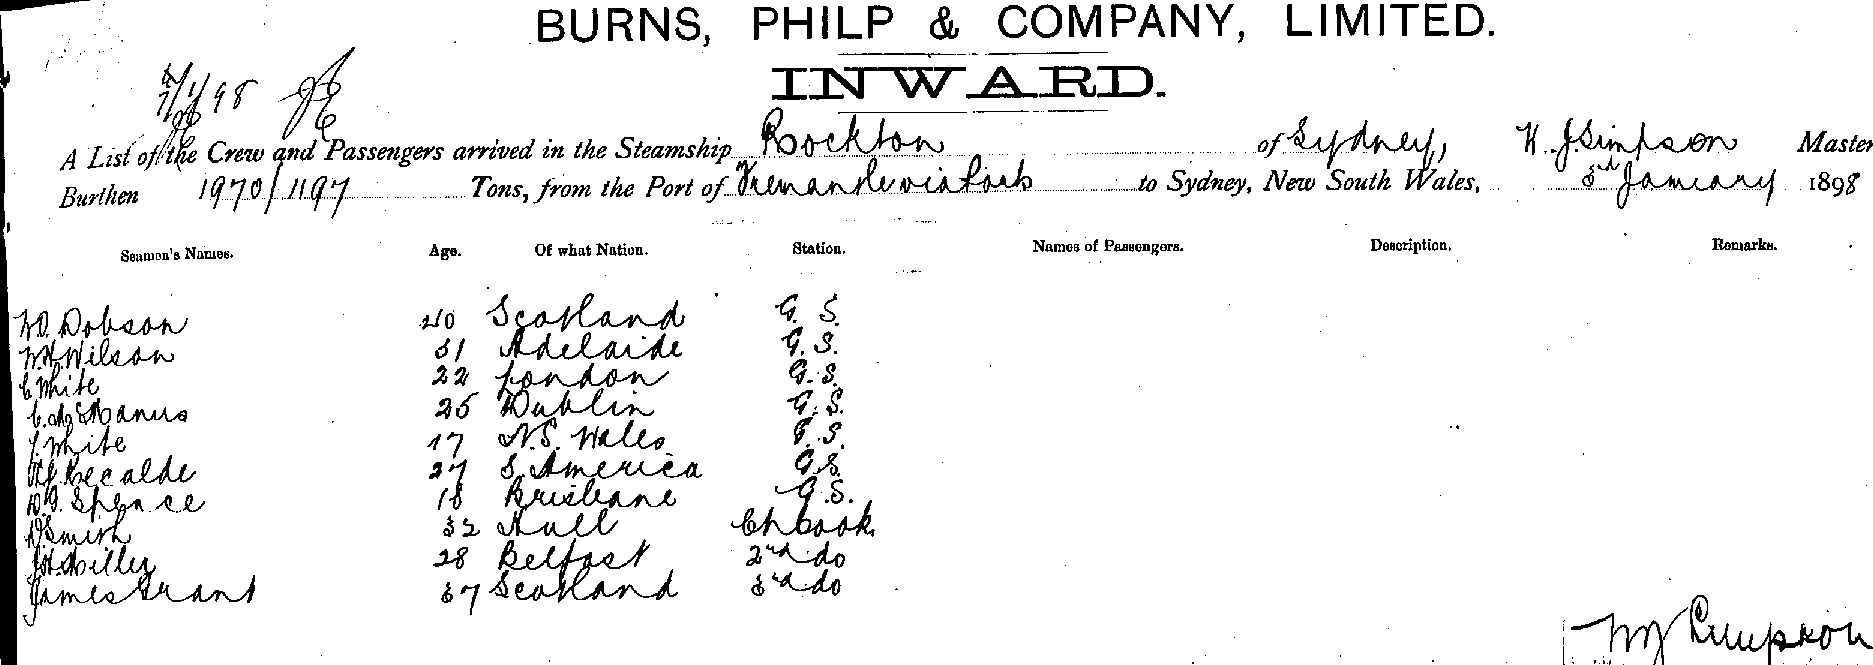 BURNS, PHILP & COMPANY, LIMITED.
INWARD.
7/1/98
A List of the Crew and Passengers arrived in the Steamship Rockton of Sydney, W. J Simpson Master
Burthen 1970/1197 Tons, from the Port of Fremantle via Ports to Sydney, New South Wales, 3rd January 1898
Seamen's Names. Age. Of what Nation. Station. Names of Passengers. Description. Remarks.
W. D. Dobson 40 Scotland G. S.
W. H. Wilson 31 Adelaide G. S.
C. White 22 London G. S.
C. McManus 25 Dublin G. S.
J. White 17 N. S. Wales G. S.
Recalde 27 S. America G. S.
D. G. Spence 18 Brisbane G. S.
D Smith 32 Hull Ch Cook
J. H. Miller 28 Belfast 2nd do
James Grant 37 Scotland 3rd do
W J Simpson